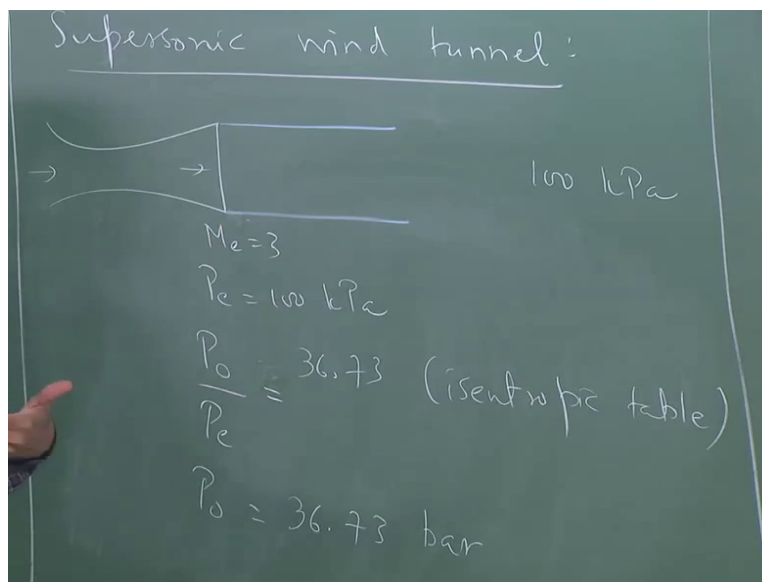 Supersonic wind tunnel :
→ →
100 kPa
Me = 3
Pe = 100 kPa
Po / Pe = 36.73 (isentropic table)
Po = 36.73 bar